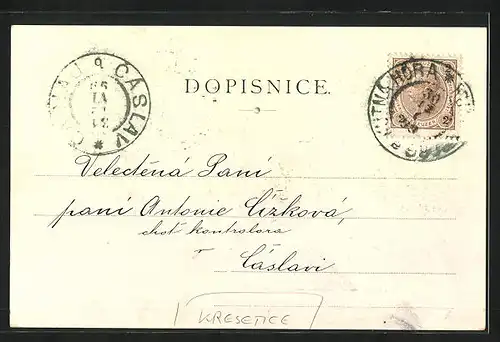 ČÁSLAV
DOPISNICE.
HORA
Velectěná Paní
paní Antonie Čížková,
choť kontrolora
v
Čáslavi
KRESETICE